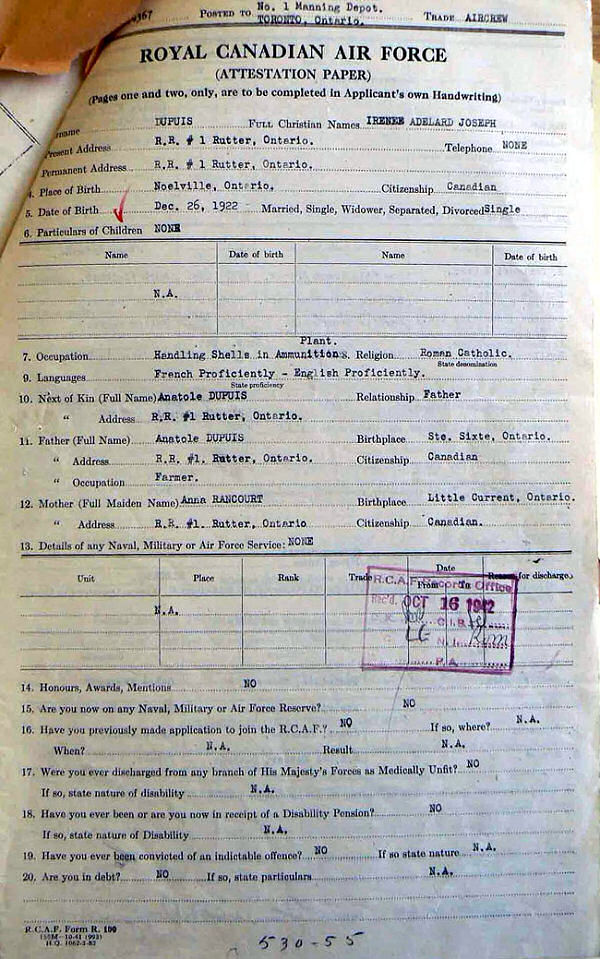 4367 POSTED TO No. 1 Manning Depot. TRADE AIRCREW
TORONTO, Ontario.
ROYAL CANADIAN AIR FORCE
(ATTESTATION PAPER)
(Pages one and two, only, are to be completed in Applicant's own Handwriting)
DUPUIS FULL Christian Names IRENEE ADELARD JOSEPH
Present Address R.R. # 1 Rutter, Ontario. Telephone NONE
Permanent Address R.R. # 1 Rutter, Ontario.
4. Place of Birth Noelville, Ontario. Citizenship Canadian
5. Date of Birth Dec. 26, 1922 Married, Single, Widower, Separated, Divorced Single
6. Particulars of Children NONE
Name Date of birth Name Date of birth
N.A.
Plant.
7. Occupation Handling Shells in Ammunitions. Religion Roman Catholic.
State denomination
9. Languages French Proficiently - English Proficiently.
State proficiency
10. Next of Kin (Full Name) Anatole DUPUIS Relationship Father
" Address R.R. #1 Rutter, Ontario.
11. Father (Full Name) Anatole DUPUIS Birthplace Ste. Sixte, Ontario.
" Address R.R. #1. Rutter, Ontario. Citizenship Canadian
" Occupation Farmer.
12. Mother (Full Maiden Name) Anna RANCOURT Birthplace Little Current, Ontario.
" Address R.R. #1. Rutter, Ontario Citizenship Canadian.
13. Details of any Naval, Military or Air Force Service: NONE
Unit Place Rank Trade Date From To Reason for discharge
N.A.
R.C.A.F. Records Office
Rec'd. OCT 16 1942
C.I.B.
N.I.
P.A.
14. Honours, Awards, Mentions NO
15. Are you now on any Naval, Military or Air Force Reserve? NO
16. Have you previously made application to join the R.C.A.F.? NO If so, where? N.A.
When? N.A. Result N.A.
17. Were you ever discharged from any branch of His Majesty's Forces as Medically Unfit? NO
If so, state nature of disability N.A.
18. Have you ever been or are you now in receipt of a Disability Pension? NO
If so, state nature of Disability N.A.
19. Have you ever been convicted of an indictable offence? NO If so state nature N.A.
20. Are you in debt? NO If so, state particulars N.A.
R.C.A.F. Form R. 100
(50M-10-41 (993)
H.Q. 1062-3-82
530-55